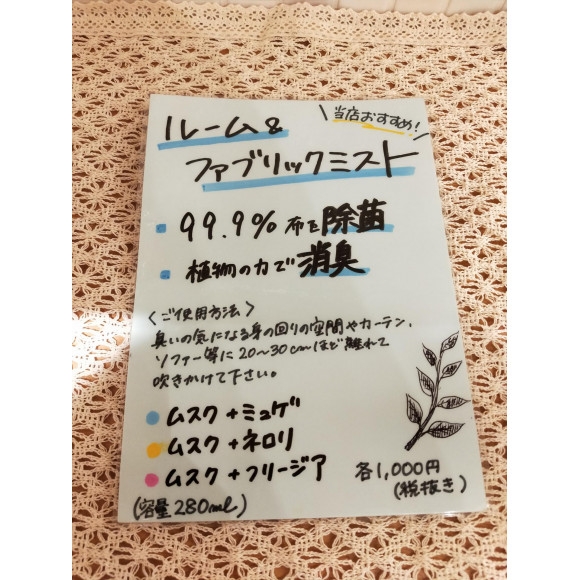 当店おすすめ!
ルーム&
ファブリックミスト
99.9% 布を除菌
植物の力で消臭
〈ご使用方法〉
臭いの気になる身の回りの空間やカーテン、
ソファー等に20〜30cmほど離れて
吹きかけて下さい。
ムスク+ミュゲ
ムスク+ネロリ
ムスク+フリージア
各1,000円
(税抜き)
(容量280ml)